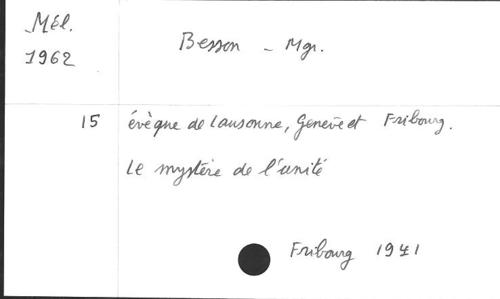 Mél.
1962
Besson - Mgr.
15 évèque de Lausonne, Genève et Fribourg.
Le mystère de l'unité
Fribourg 1941